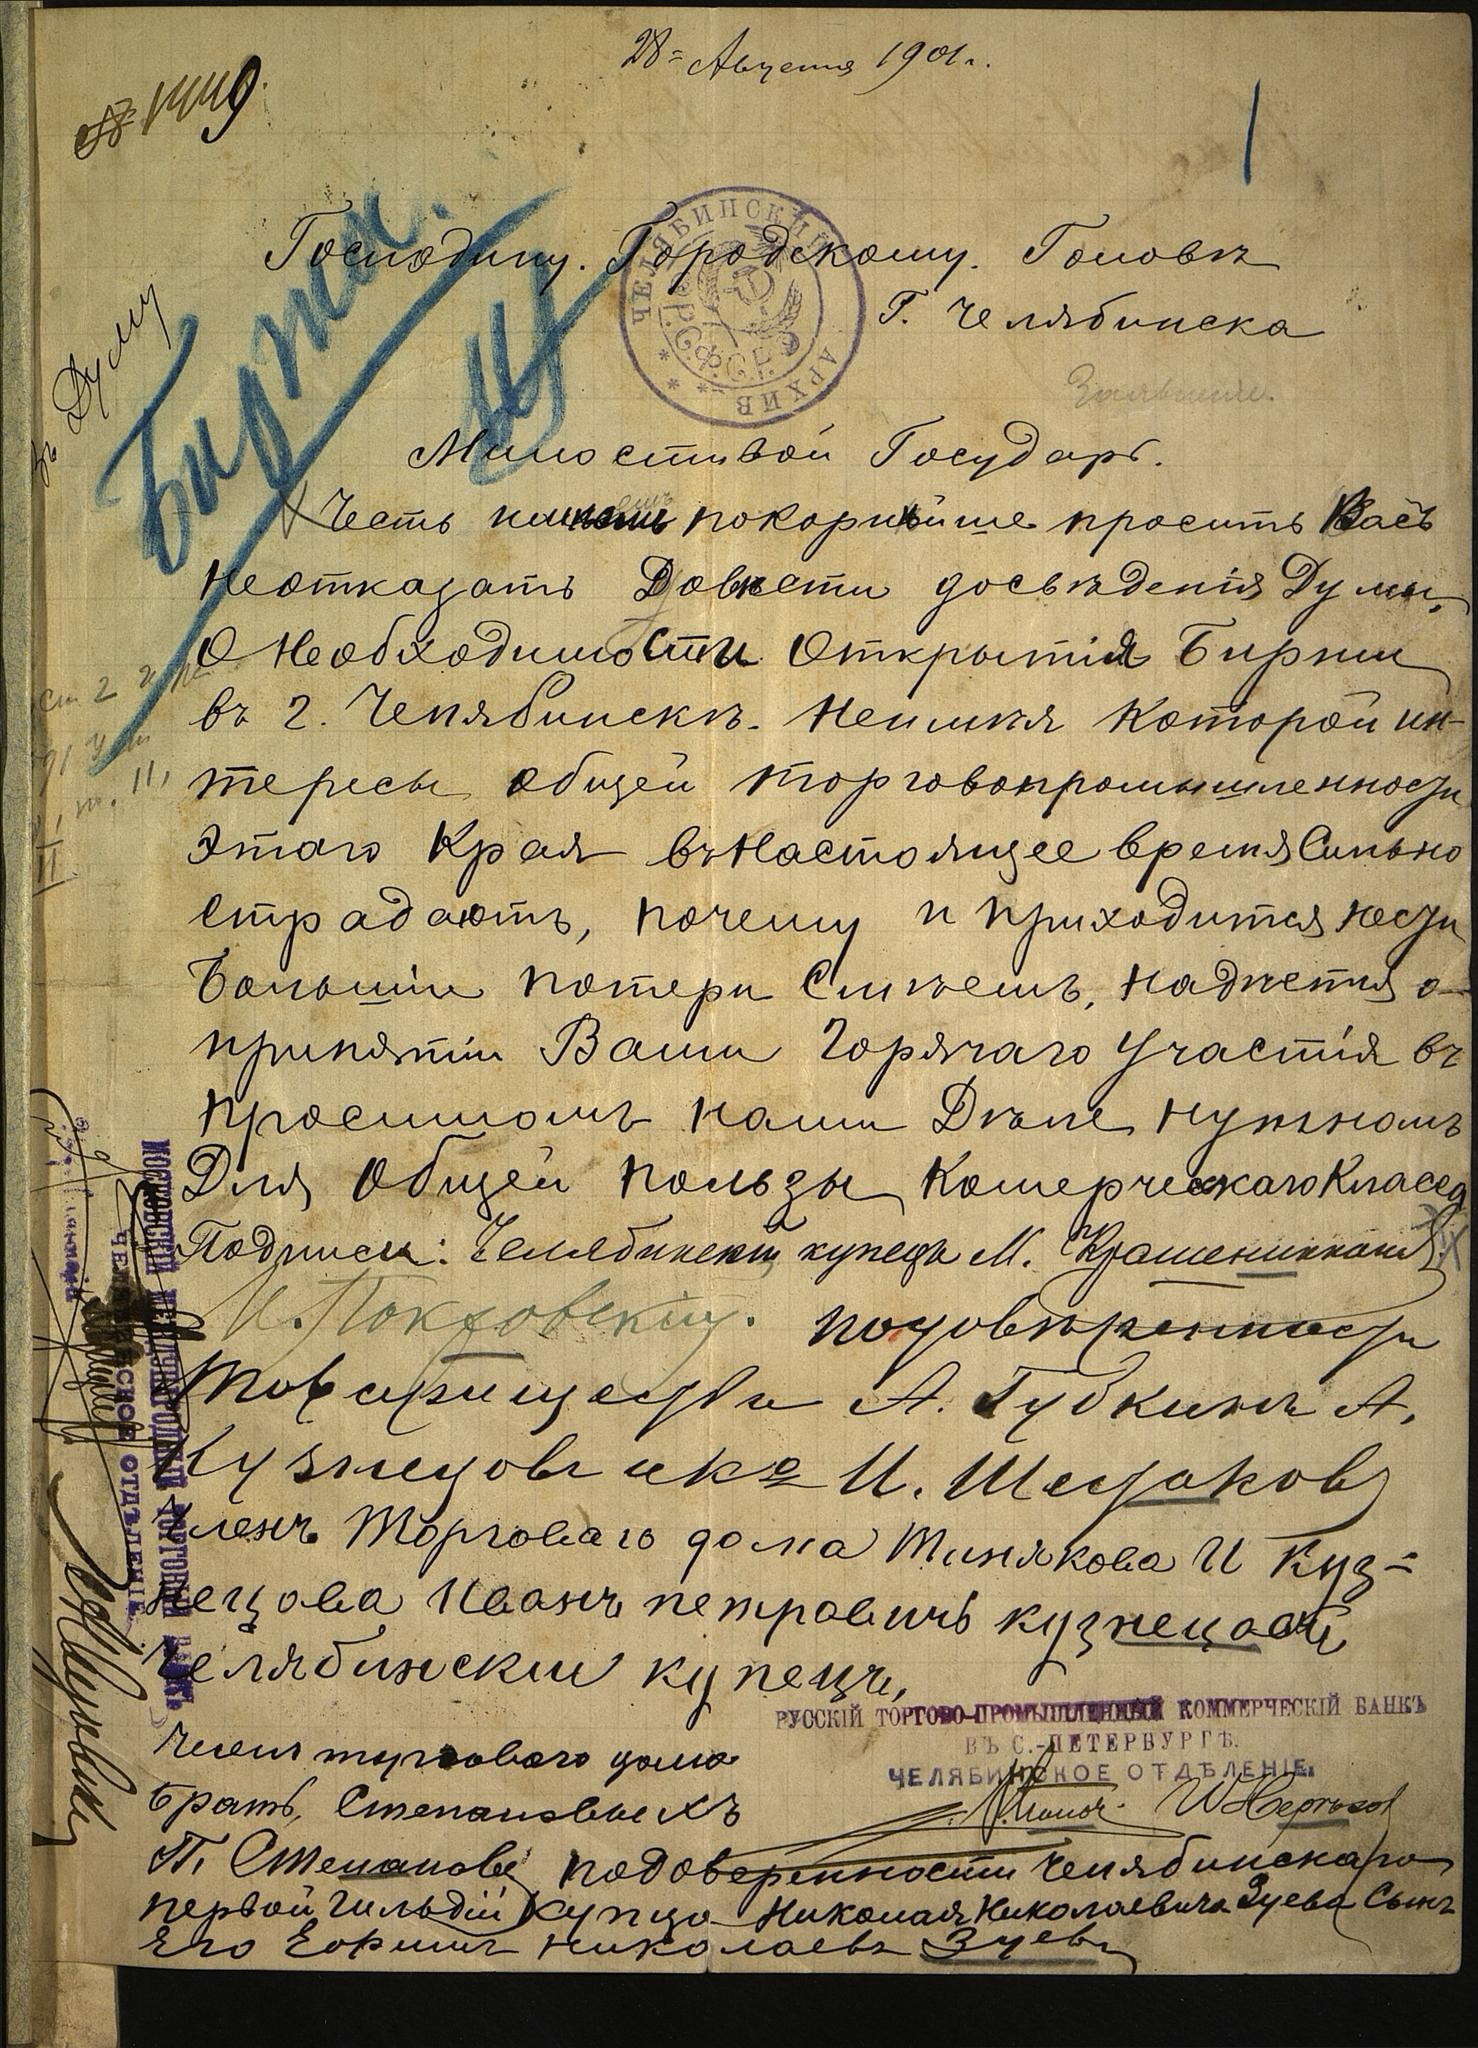 28 = Августа 1901 г.
№ 1449
1
Биржа.
Господину. Городскому. Головѣ
Г. Челябинска
ЧЕЛЯБИНСКИЙ АРХИВ
Р.С.Ф.С.Р.
въ Думу
Заявление.
Милостивой Государь.
Честь имѣемъ покорнѣйше просить Васъ
неотказать Довѣсти досвѣдения Думы,
О Необходимости Открытия Биржи
въ г. Челябинскѣ. Неимѣя Которой ин-
тересы общей торговопромышленности
Этаго Края въ Настоящее время Сильно
страдаютъ, почему и приходится нести
Большии потери Симъ, надѣется о-
принятии Вами Горячаго Участія въ
просимомъ нами Дѣле нужномъ
Для Общей пользы Комерческаго Класса
Подписи: Челябинский купецъ М. Крашенинниковъ
И. Покровский. подовѣренности
Товарищества А. Губкинъ А.
Кузнецовъ и Ко И. Шестаковъ
Членъ Торговаго дома Тинякова И Куз=
нецова Иванъ петровичъ кузнецовъ
Челябинский купецъ,
Членъ торговаго дома
братьев Степановыхъ
П. Степановъ
РУССКІЙ ТОРГОВО-ПРОМЫШЛЕННЫЙ КОММЕРЧЕСКІЙ БАНКЪ
ВЪ С.-ПЕТЕРБУРГѢ.
ЧЕЛЯБИНСКОЕ ОТДѢЛЕНІЕ.
подоверенности Челябинскаго
первой гильдии Купца Николая Николаевича Зуева Сынъ
Его Ефимъ николаевъ Зуевъ
МОСКОВСКІЙ МЕЖДУНАРОДНЫЙ ТОРГОВЫЙ БАНКЪ
ЧЕЛЯБИНСКОЕ ОТДѢЛЕНІЕ.